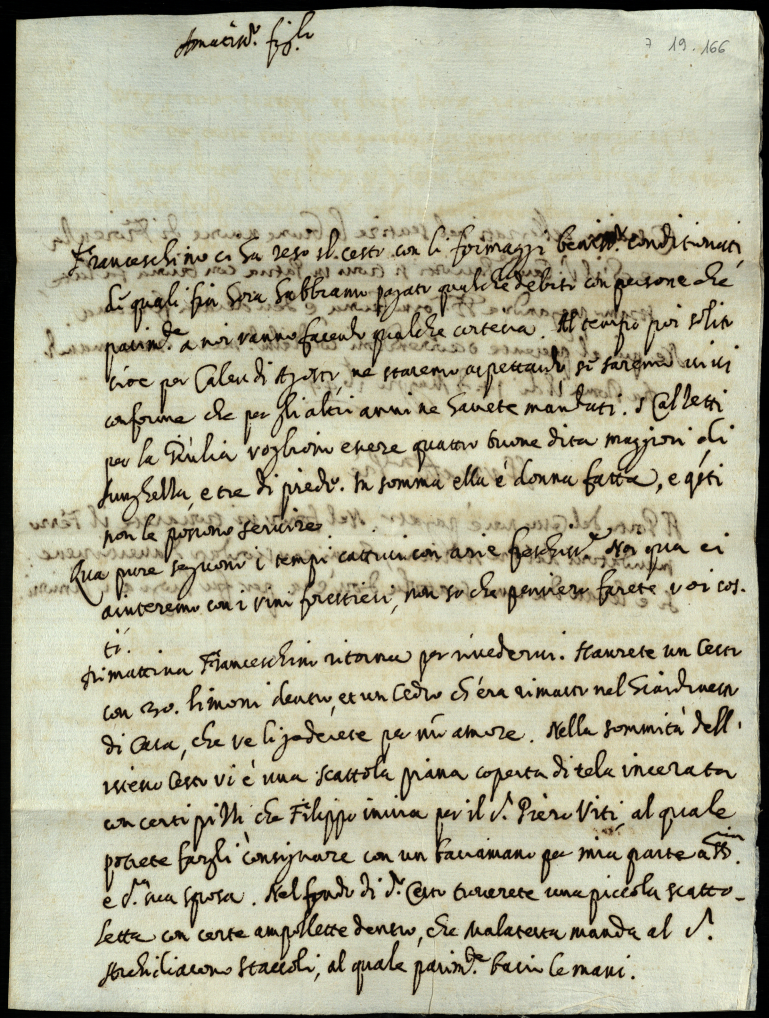 7 19.166
Amatis.ᵐᵒ figlo
Franceschino ci ha reso il cesto con li formaggi beniss.ᵒ conditionati,
di quali fin hora habbiamo pagati qualche debiti con persone che
parim.ᵗᵉ a noi vanno facendo qualche cortesia. Al tempo poi solito
cioè per Calen di Agosto ne staremo aspettando, si saremo vivi
conforme che per gli altri anni ne havete mandati. I Calzetti
per la Giulia vogliono essere quattro buone dita maggiori di
lunghezza, e tre di piede. In somma ella è donna fatta, e q.ᵗⁱ
non le possono servire.
Qua pure seguono i tempi cattivi con arie freschiss.ᵉ Noi qua ci
aiuteremo con i vini forestieri, non so che pensiero farete voi cos-
tì.
Dimattina Franceschino ritorna per rivedervi. Haverete un Cesto
con 30. limoni dentro, et un Cedro ch'era rimasto nel Giardinetto
di Casa, che ve li goderete per mio amore. Nella sommità dell'
istesso Cesto vi è una scattola piana coperta di tela incerata
con certi che Filippo invia per il S.ʳ Piero Viti, al quale
potrete fargli consignare con un baciamano per mia parte a SS.ʳⁱᵃ
e S.ʳᵃ sua sposa. Nel fondo di d.ᵒ Cesto troverete una piccola scatto-
letta con certe ampollette dentro, che Malatesta manda al S.ʳ
Archidiacono Staccoli, al quale parim.ᵗᵉ bacio le mani.